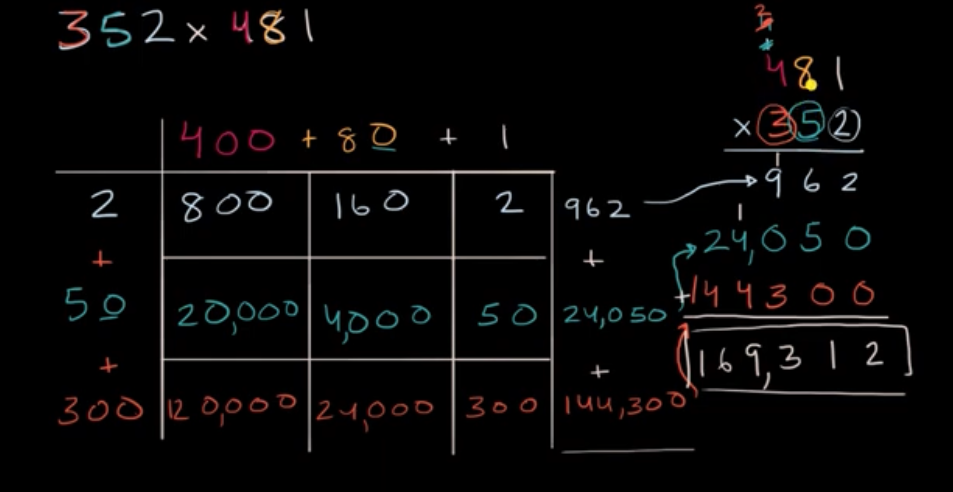 352 × 481
481
× 352
400 + 80 + 1
2 800 160 2 962
+ +
50 20,000 4,000 50 24,050
+ +
300 120,000 24,000 300 144,300
1
962
1
24,050
+144300
169,312